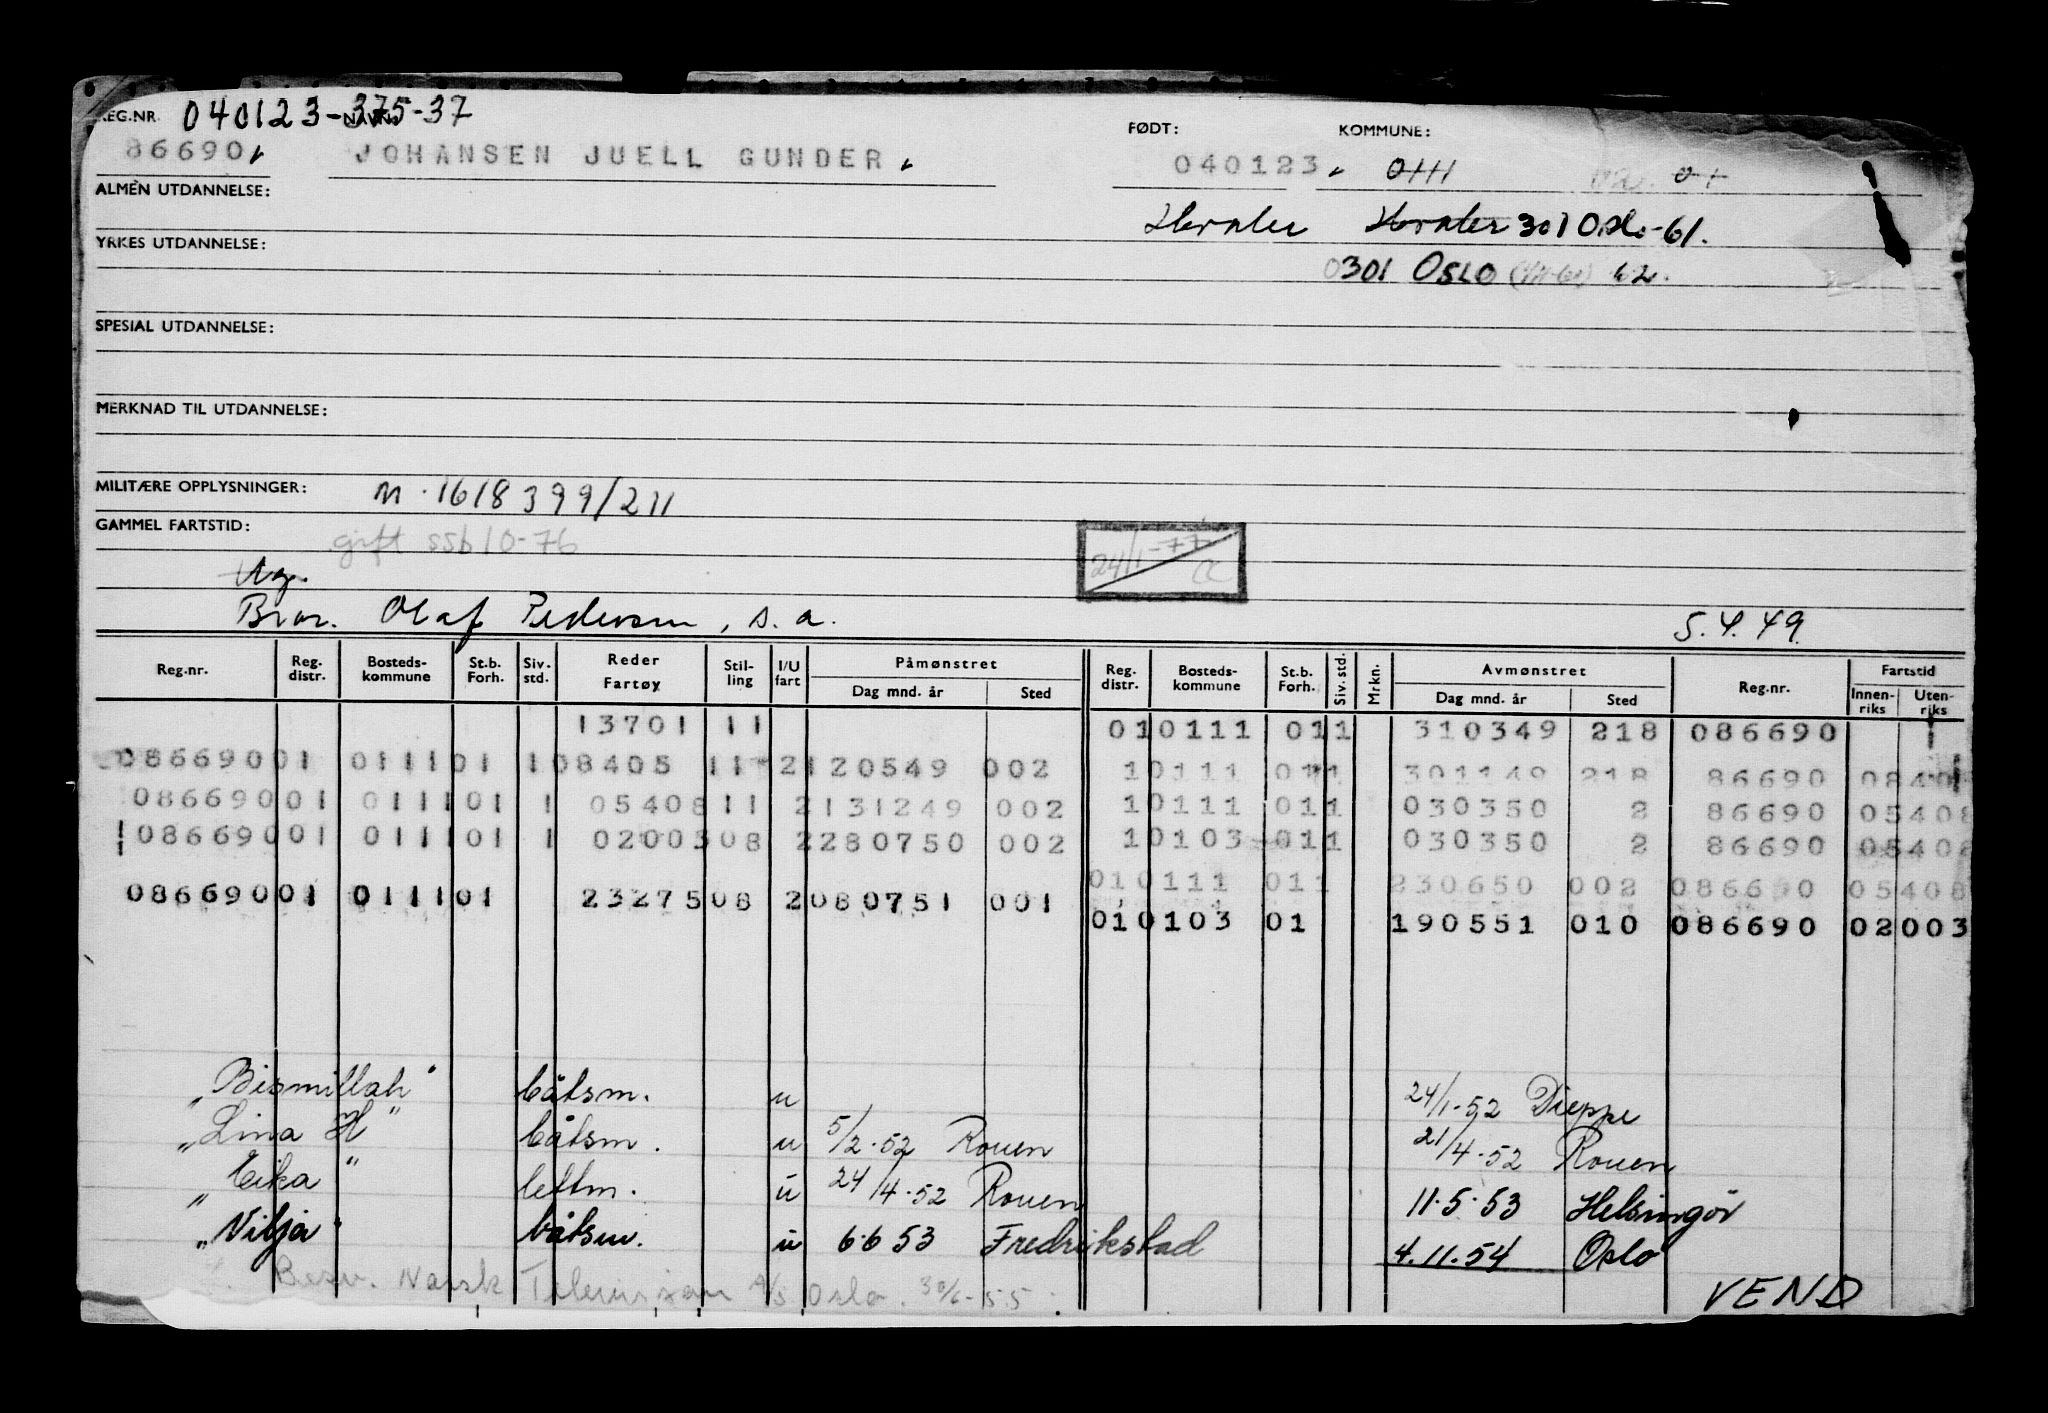 REG.NR. 040123-375-37 NAVN: FØDT: KOMMUNE:
86690 JOHANSEN JUELL GUNDER 040123 0111
ALMEN UTDANNELSE: Hvaler Hvaler 301 Oslo-61.
YRKES UTDANNELSE:
0301 OSLO 62.
SPESIAL UTDANNELSE:
MERKNAD TIL UTDANNELSE:
MILITÆRE OPPLYSNINGER: M.1618399/211
GAMMEL FARTSTID:
gift ssb 10-76 24/1-77 CC
Ug.
Bror. Olaf Pedersen, s.a. 5.4.49
Reg.nr. Reg. distr. Bosteds-kommune St.b. Forh. Siv. std. Reder Fartøy Stil-ling I/U fart Påmønstret Dag mnd. år Sted Reg. distr. Bosteds-kommune St.b. Forh. Siv. std. Mrkn. Avmønstret Dag mnd. år Sted Reg.nr. Fartstid Innen-riks Uten-riks
13701 11 010111 011 310349 218 086690
08669001 011101 108405 11 2120549 002 10111 011 301149 218 86690 08405
08669001 011101 1 05408 11 2131249 002 10111 011 030350 2 86690 05408
08669001 011101 1 02003 08 2280750 002 10103 011 030350 2 86690 05408
010111 011 230650 002 086690 05408
08669001 011101 23275 08 2080751 001 010103 01 190551 010 086690 02003
"Bismillah" båtsm. u 24/1-52 Dieppe
"Lina H" båtsm. u 5/2-52 Rouen 21/4-52 Rouen
"Eika" lettm. u 24/4-52 Rouen 11.5.53 Helsingör
"Vilja" båtsm. u 6.6 53 Fredrikstad 4.11.54 Oslo
Besv. Norsk A/S Oslo. 30/6-55.
VEND